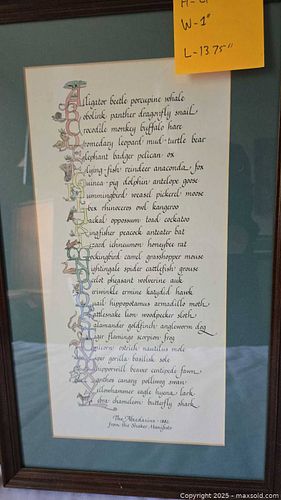 H-
W-1"
L-13.75"
Alligator beetle porcupine whale
Bobolink panther dragonfly snail
Crocodile monkey buffalo hare
Dromedary leopard mud-turtle bear
Elephant badger pelican ox
Flying-fish reindeer anaconda fox
Guinea-pig dolphin antelope goose
Hummingbird weasel pickerel moose
Ibex rhinoceros owl kangaroo
Jackal oppossum toad cockatoo
Kingfisher peacock anteater bat
Lizard ichneumon honeybee rat
Mockingbird camel grasshopper mouse
Nightingale spider cattlefish grouse
Ocelot pheasant wolverine auk
Periwinkle ermine katydid hawk
Quail hippopotamus armadillo moth
Rattlesnake lion woodpecker sloth
Salamander goldfinch angleworm dog
Tiger flamingo scorpion frog
Unicorn ostrich nautilus mole
Viper gorilla basilisk sole
Whippoorwill beaver centipede fawn
Xanthos canary polliwog swan
Yellowhammer eagle hyena lark
Zebra chameleon butterfly shark
The Abecedarius - 1882
from the Shaker Manifesto
Copyright © 2025 - maxsold.com